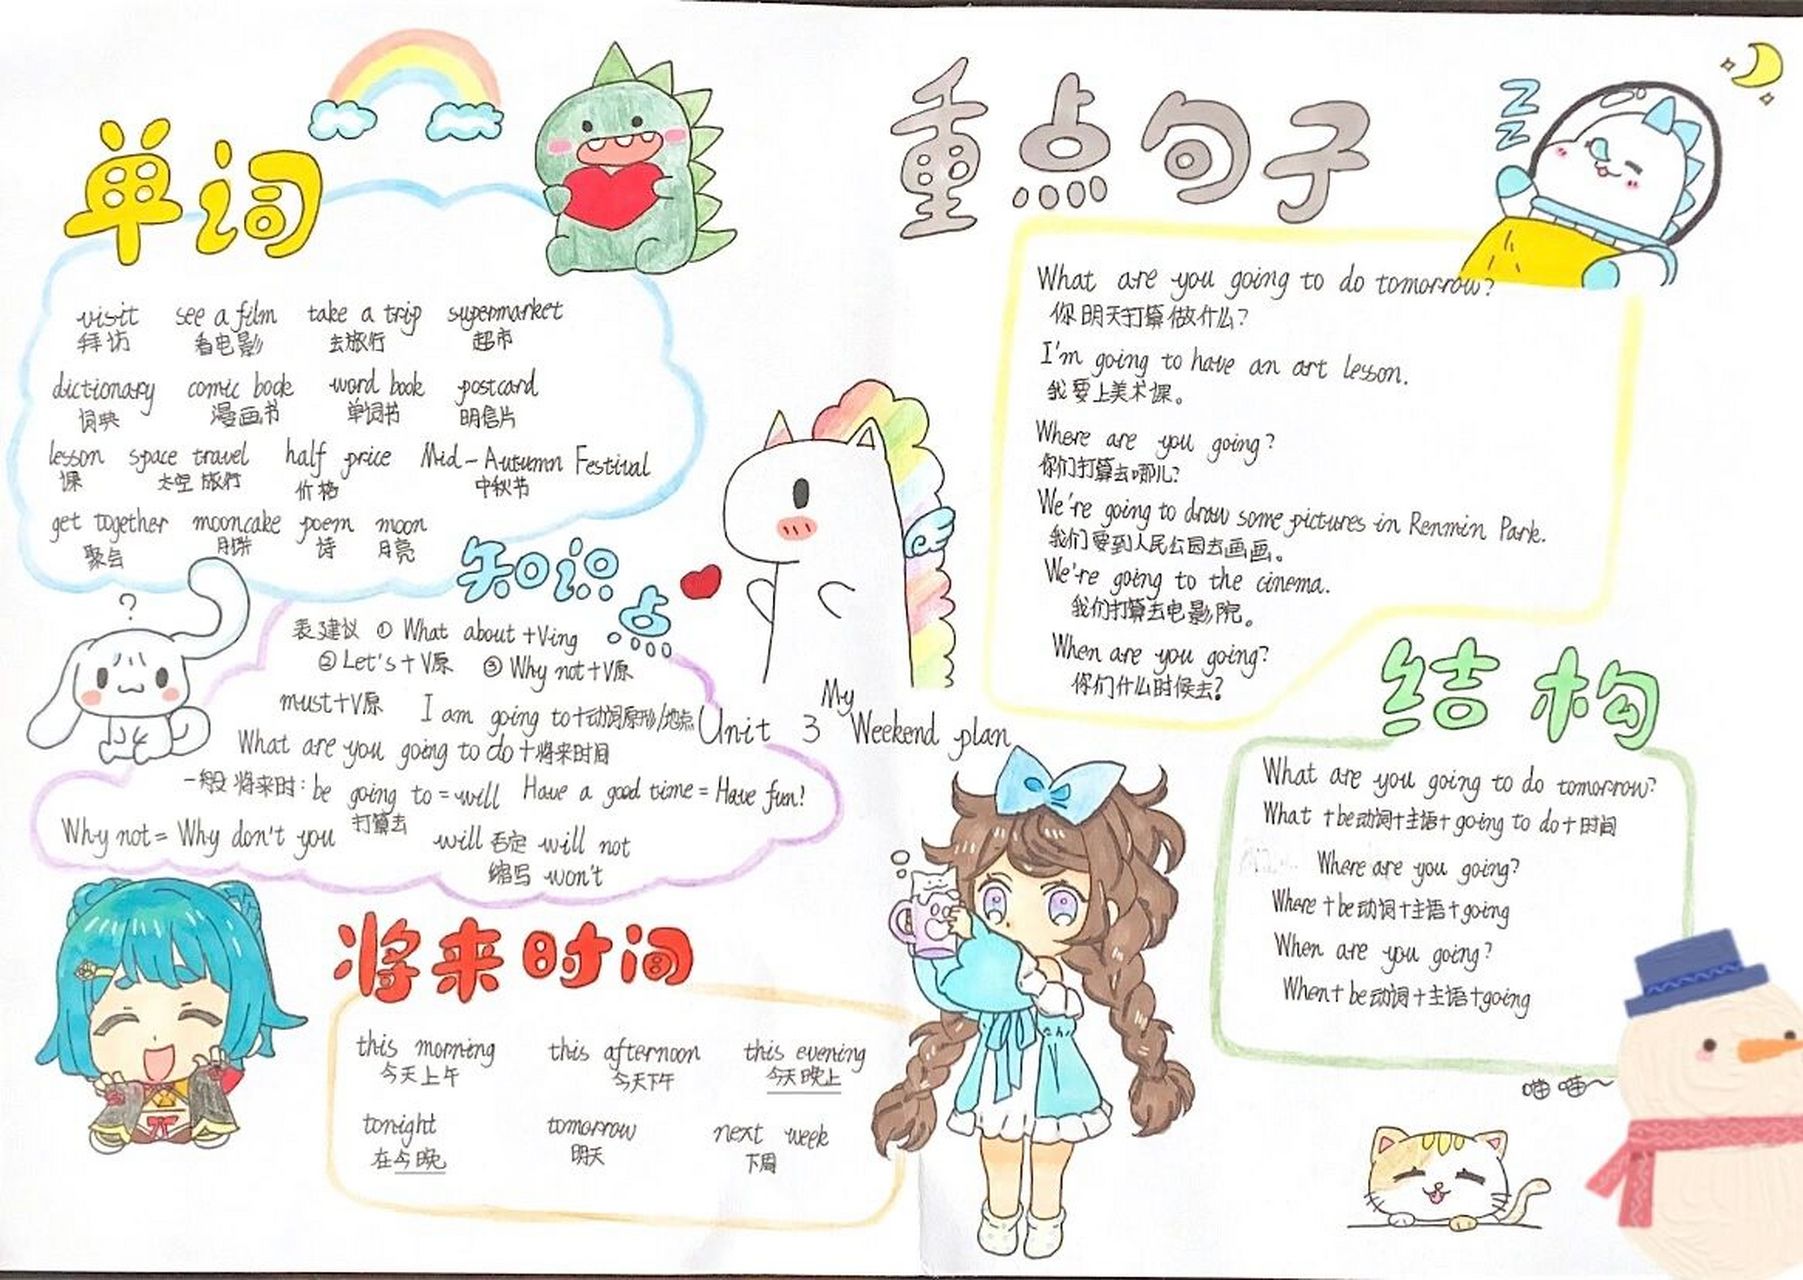 单词
visit see a film take a trip supermarket
拜访 看电影 去旅行 超市
dictionary comic book word book postcard
词典 漫画书 单词书 明信片
lesson space travel half price Mid-Autumn Festival
课 太空旅行 价格 中秋节
get together mooncake poem moon
聚会 月饼 诗 月亮
知识点
?
表建议 ① What about +Ving
② Let's+V原 ③ Why not+V原
must+V原 I am going to+动词原形/地点
What are you going to do+将来时间
一般将来时: be going to = will Have a good time = Have fun!
打算去
Why not = Why don't you will 否定 will not
缩写 won't
My
Unit 3 Weekend plan
将来时间
this morning this afternoon this evening
今天上午 今天下午 今天晚上
tonight tomorrow next week
在今晚 明天 下周
重点句子
Z
Z
Z
What are you going to do tomorrow?
你明天打算做什么?
I'm going to have an art lesson.
我要上美术课。
Where are you going?
你们打算去哪儿?
We're going to draw some pictures in Renmin Park.
我们要到人民公园去画画。
We're going to the cinema.
我们打算去电影院。
When are you going?
你们什么时候去?
结构
What are you going to do tomorrow?
What +be动词+主语+going to do+时间
Where are you going?
Where+be动词+主语+going
When are you going?
When+be动词+主语+going
喵喵~